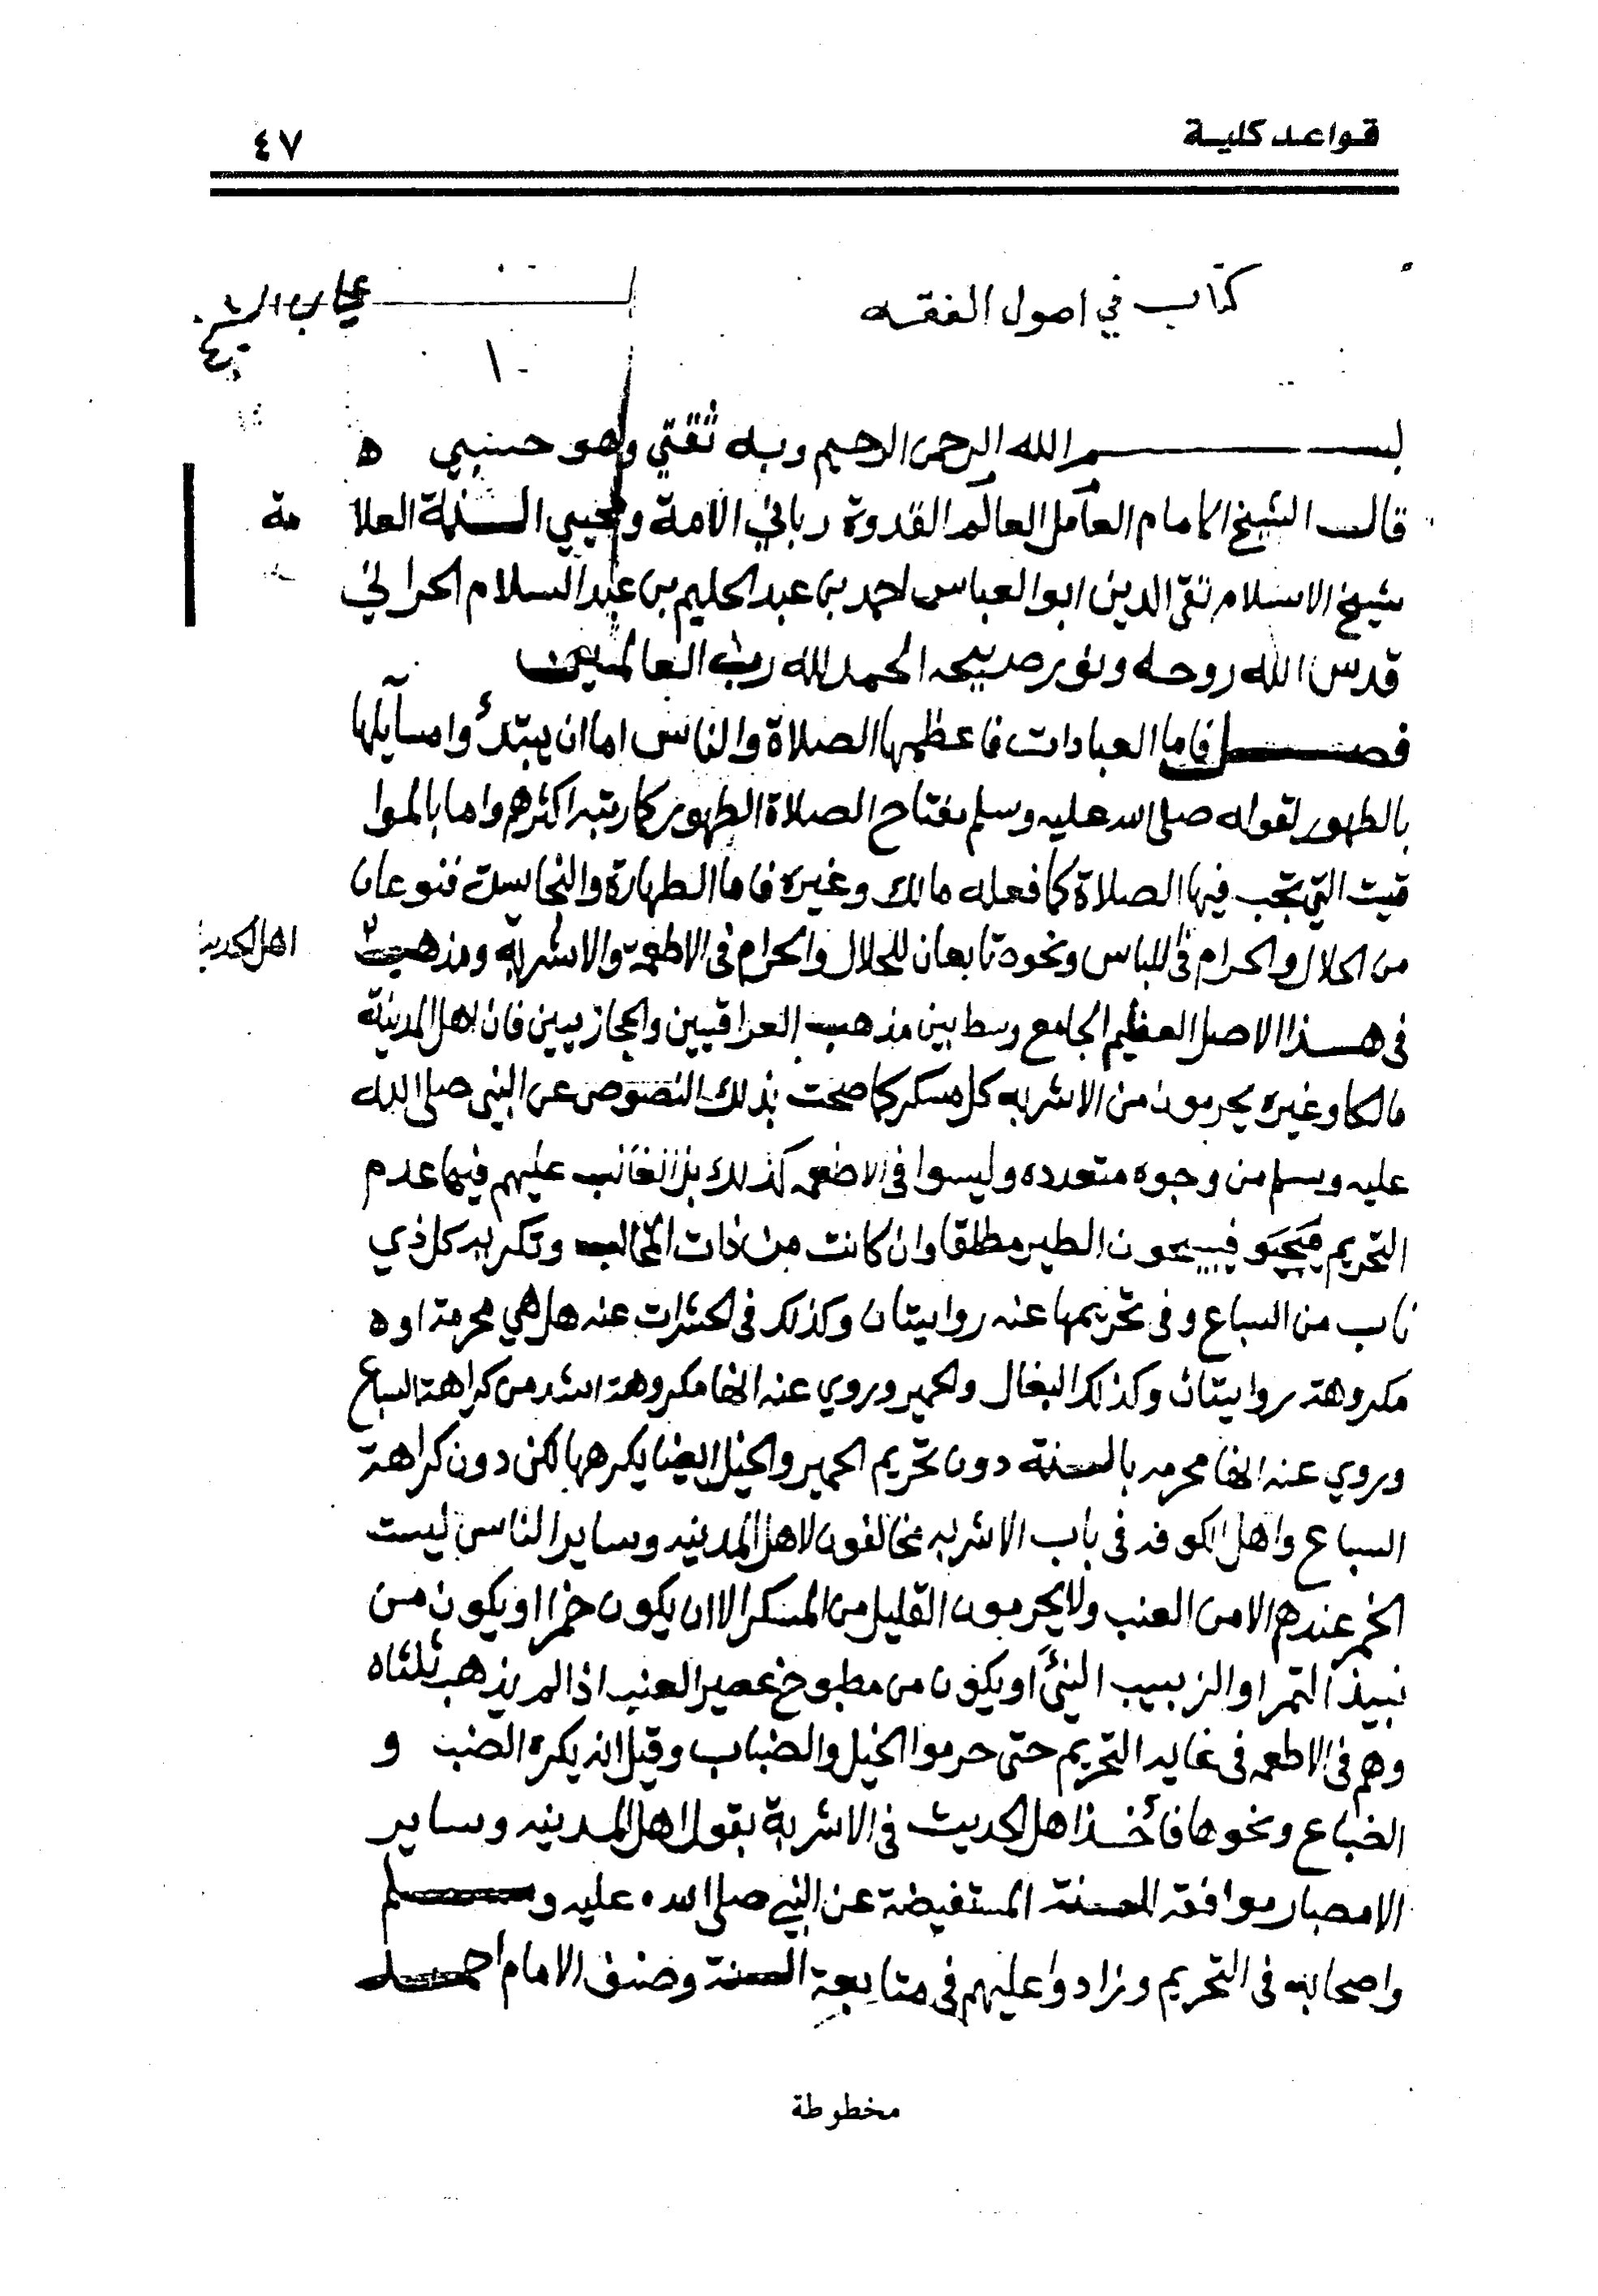 قواعد كلية
٤٧
كتاب في اصول الفقه
١٠
بسم الله الرحمن الرحيم وبه ثقتي وهو حسبي ه
قال الشيخ الامام العامل العالم القدوة رباني الامة ومحيي السنة العلامة
شيخ الاسلام تقي الدين ابو العباس احمد بن عبد الحليم بن عبد السلام الحراني
قدس الله روحه ونور ضريحه الحمد لله رب العالمين
فصل فاما العبادات فاعظمها الصلاة والناس اما ان يبتدئوا مسآيلها
بالطهور لقوله صلى الله عليه وسلم مفتاح الصلاة الطهور كما رتبه اكثرهم واما بالموا
قيت التي تجب فيها الصلاة كما فعله مالك وغيره فاما الطهارة والنجاسة فنوعان
من الحلال والحرام في اللباس ونحوه تابعان للحلال والحرام في الاطعمة والاشربة ومذهب
اهل الحديث
في هذا الاصل العظيم الجامع وسط بين مذهب العراقيين والحجازيين فان اهل المدينة
مالكا وغيره يحرمون من الاشربه كل مسكر كما صحت بذلك النصوص عن النبي صلى الله
عليه وسلم من وجوه متعدده وليسوا في الاطعمه كذلك بل الغالب عليهم فيها عدم
التحريم فيبيحون الطير مطلقا وان كانت من ذات المخالب وتكريه كل ذي
ناب من السباع وفي تحريمها عنه روايتان وكذلك في الحشرات عنه هل هي محرمة او ه
مكروهة روايتان وكذلك البغال والحمير وروي عنه انها مكروهة اشد من كراهة السباع
وروي عنه انها محرمه بالسنة دون تحريم الحمير والخيل ايضا يكرهها لكن دون كراهة
السباع واهل الكوفه في باب الاشربه مخالفون لاهل المدينه وساير الناس ليست
الخمر عندهم الا من العنب ولا يحرمون القليل من المسكر الا ان يكون خمرا او يكون من
نبيذ التمر او الزبيب النيئ او يكون من مطبوخ عصير العنب اذا لم يذهب ثلثاه
وهم في الاطعمه في غايه التحريم حتى حرموا الخيل والضباب وقيل انه يكره الضب و
الضباع ونحوها فأخذ اهل الحديث في الاشربة بقول اهل المدينه وساير
الامصار موافقة للسنة المستفيضة عن النبي صلى الله عليه وسلم
واصحابه في التحريم وزادوا عليهم في متابعة السنة وصنف الامام احمد
مخطوطة